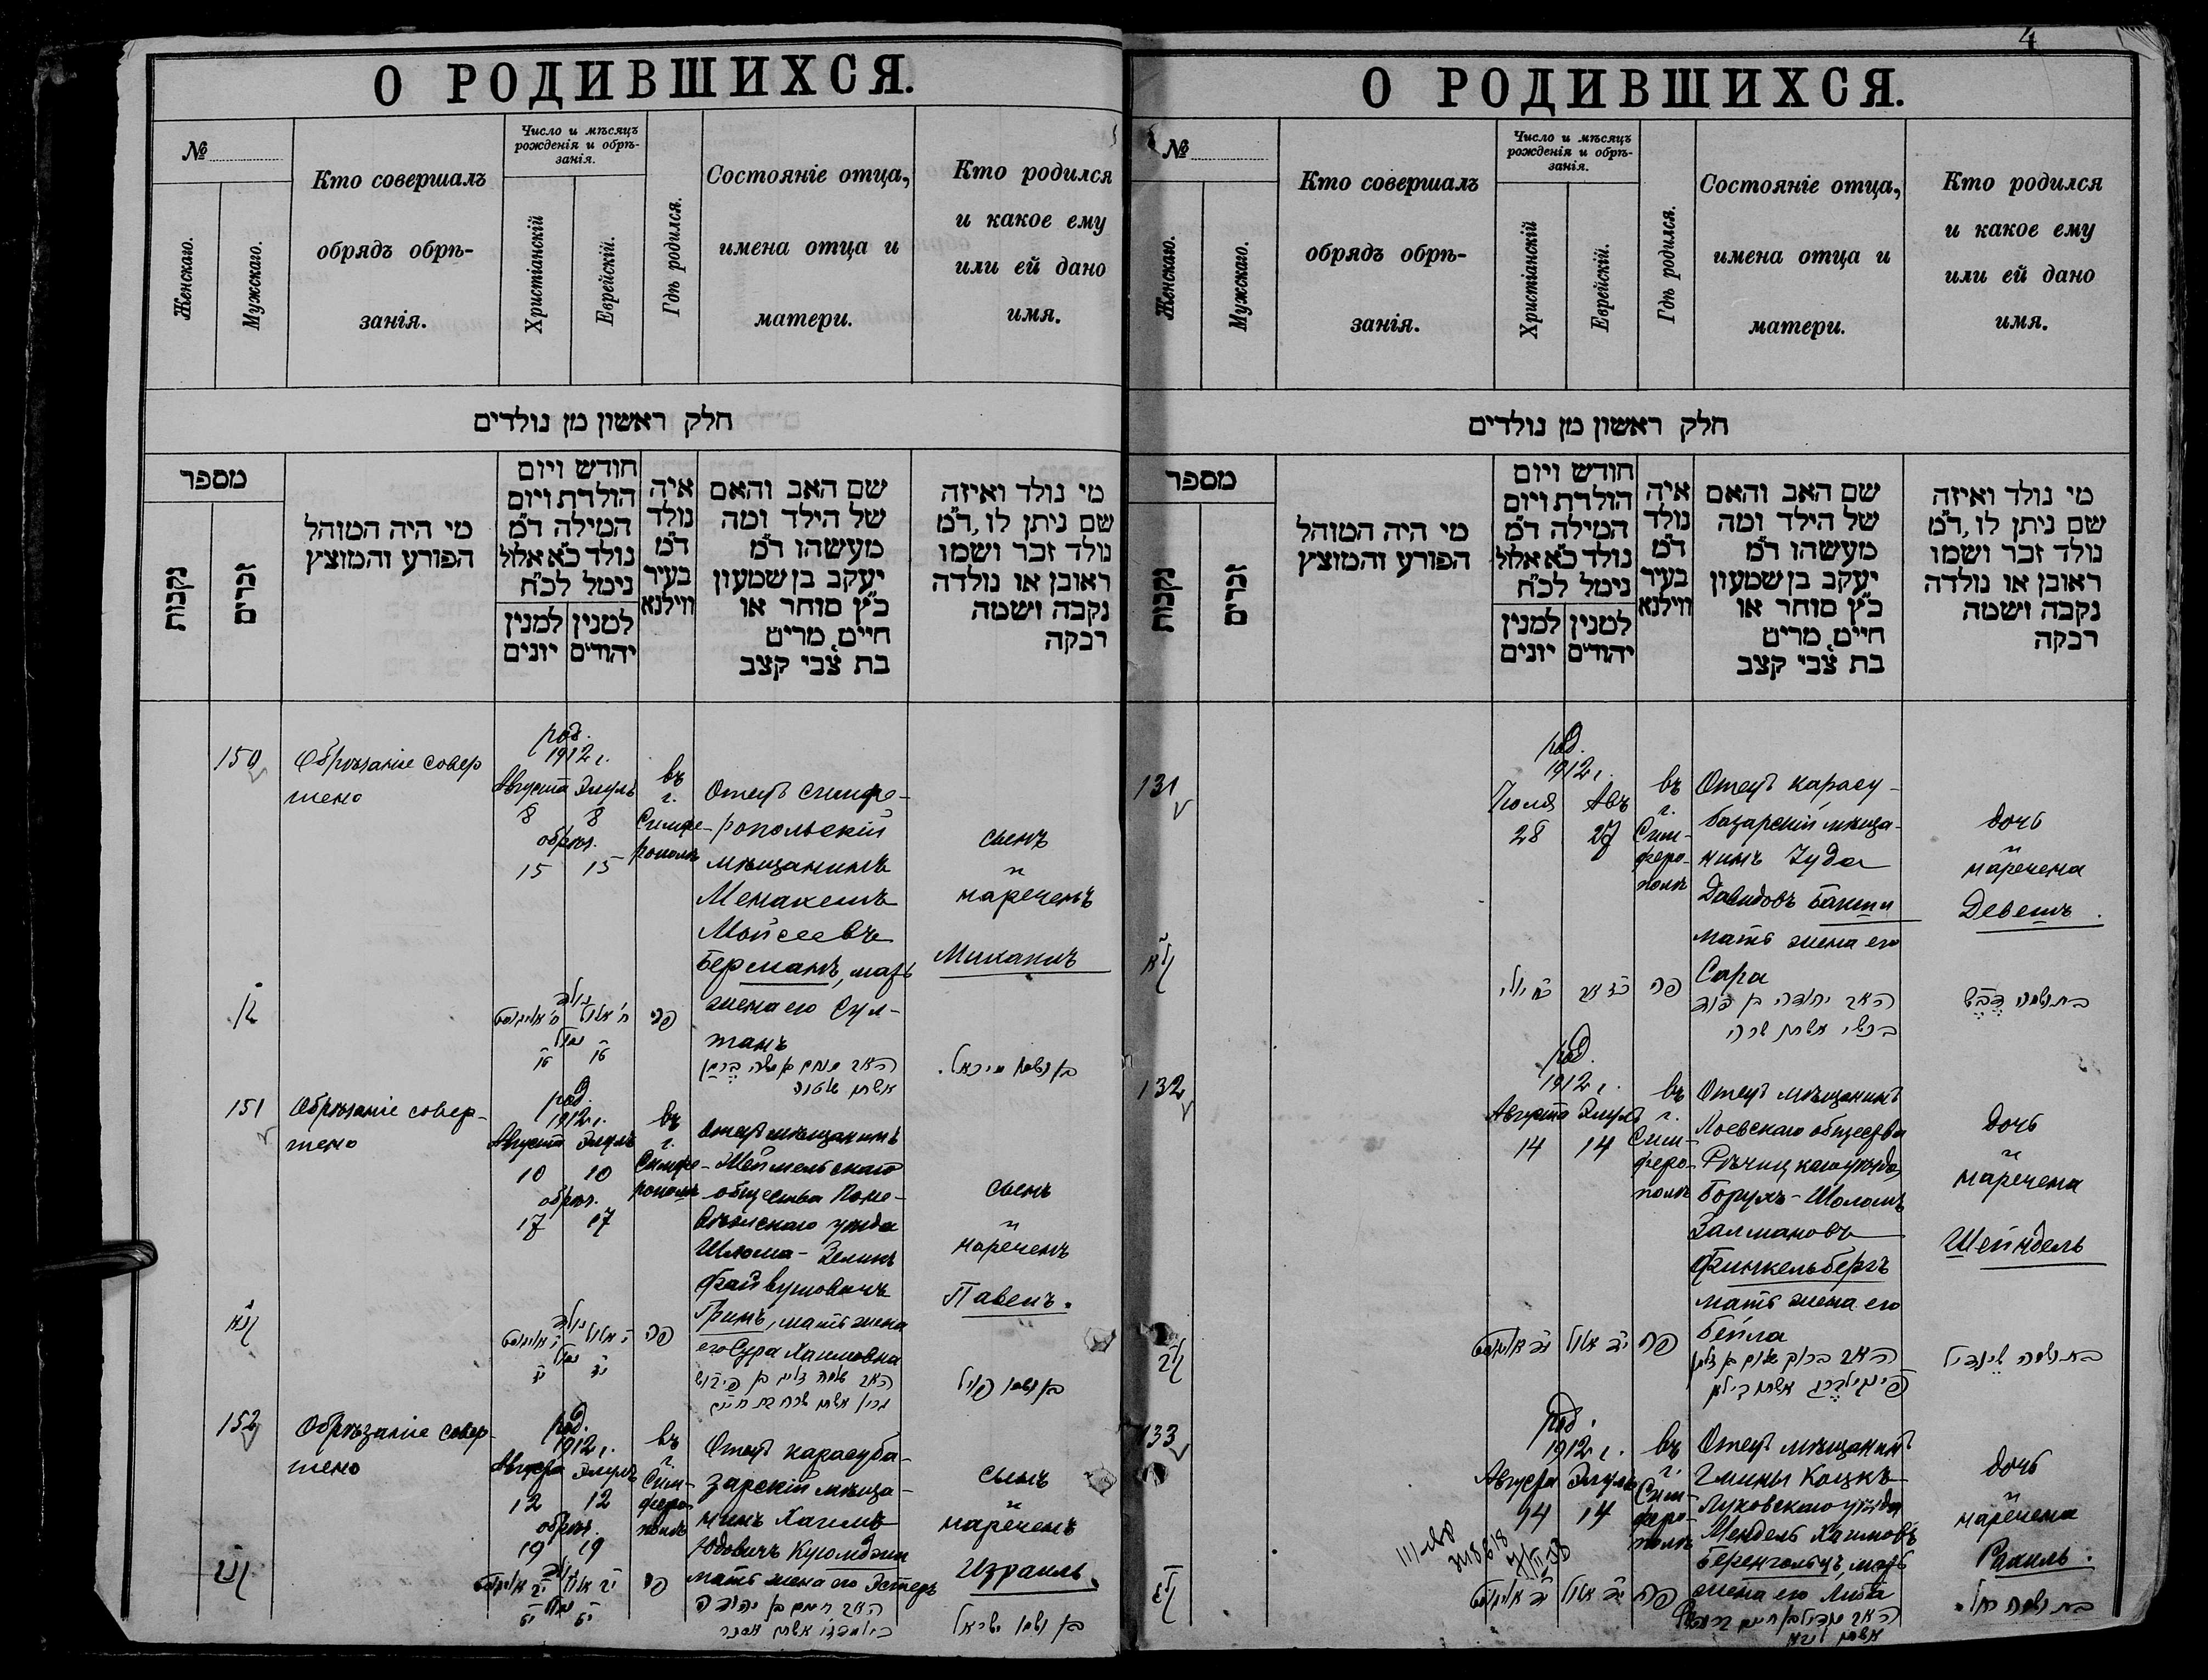 О РОДИВШИХСЯ.
№
Женскаго.
Мужскаго.
Кто совершалъ
обрядъ обрѣ-
занія.
Число и мѣсяцъ
рожденія и обрѣ-
занія.
Христіанскій
Еврейскій.
Гдѣ родился.
Состояніе отца,
имена отца и
матери.
Кто родился
и какое ему
или ей дано
имя.
חלק ראשון מן נולדים
מספר
נקבות
זכרים
מי היה המוהל
הפורע והמוצץ
חודש ויום
הולדת ויום
המילה ד״מ
נולד כ״א אלול
נימל לכ״ח
למנין
יונים
למנין
יהודים
איה
נולד
ד״מ
בעיר
ווילנא
שם האב והאם
של הילד ומה
מעשהו ד״מ
יעקב בן שמעון
כ״ץ סוחר או
חיים, מרים
בת צבי קצב
מי נולד ואיזה
שם ניתן לו, ד״מ
נולד זכר ושמו
ראובן או נולדה
נקבה ושמה
רבקה
150
Обрѣзаніе совер
шено
род.
1912 г.
Августа Элулъ
8 8
обрѣз.
15 15
въ
г.
Симфе-
рополѣ
Отецъ симфе-
ропольскій
мѣщанинъ
Менахемъ
Мойсеевъ
Берманъ, мать
жена его Сул-
танъ
сынъ
нареченъ
Михаилъ
האב מנחם בן משה ברמן
בן ושמו מיכאל.
151
Обрѣзаніе совер-
шено
род.
1912 г.
Августа Элулъ
10 10
обрѣз.
17 17
въ
г.
Симфе-
рополѣ
Отецъ мѣщанинъ
общества Поне-
вѣжскаго уѣзда
Шлома-Зеликъ
Файвушовичъ
Гринъ, мать жена
его Сура Хаимовна
сынъ
нареченъ
Павелъ.
152
Обрѣзаніе совер-
шено
род.
1912 г.
Августа Элулъ
12 12
обрѣз.
19 19
въ
г.
Сим-
феро-
полѣ
Отецъ карасуба-
зарскій мѣща-
нинъ Хаимъ
Юдовичъ Куюмджи
мать жена его Эстеръ
сынъ
нареченъ
Израиль.
האב חיים בן יהודה
בן ושמו ישראל
4
О РОДИВШИХСЯ.
№
Женскаго.
Мужскаго.
Кто совершалъ
обрядъ обрѣ-
занія.
Число и мѣсяцъ
рожденія и обрѣ-
занія.
Христіанскій
Еврейскій.
Гдѣ родился.
Состояніе отца,
имена отца и
матери.
Кто родился
и какое ему
или ей дано
имя.
חלק ראשון מן נולדים
מספר
נקבות
זכרים
מי היה המוהל
הפורע והמוצץ
חודש ויום
הולדת ויום
המילה ד״מ
נולד כ״א אלול
נימל לכ״ח
למנין
יונים
למנין
יהודים
איה
נולד
ד״מ
בעיר
ווילנא
שם האב והאם
של הילד ומה
מעשהו ד״מ
יעקב בן שמעון
כ״ץ סוחר או
חיים, מרים
בת צבי קצב
מי נולד ואיזה
שם ניתן לו, ד״מ
נולד זכר ושמו
ראובן או נולדה
נקבה ושמה
רבקה
131
род.
1912 г.
Іюля Авъ
28 27
въ
г.
Сим-
феро-
полѣ
Отецъ карасу-
базарскій мѣща-
нинъ Іуда
Давидовъ Бакши
мать жена его
Сара
дочь
наречена
Девешъ.
האב יהודה בן דוד
בכשי אשתו שרה
132
род.
1912 г.
Августа Элулъ
14 14
въ
г.
Сим-
феро-
полѣ
Отецъ мѣщанинъ
Лоевскаго общества
Рѣчицкаго уѣзда,
Борухъ-Шоломъ
Залмановъ
Финкельбергъ
мать жена его
Бейла
дочь
наречена
Шейндель
133
род.
1912 г.
Августа Элулъ
14 14
въ
г.
Сим-
феро-
полѣ
Отецъ мѣщанинъ
Гмины Коцкъ
Луковскаго уѣзда
Мендель Хаимовъ
Беренгольцъ, мать
жена его Либа
дочь
наречена
Рахиль.
בת ושמה רחל.